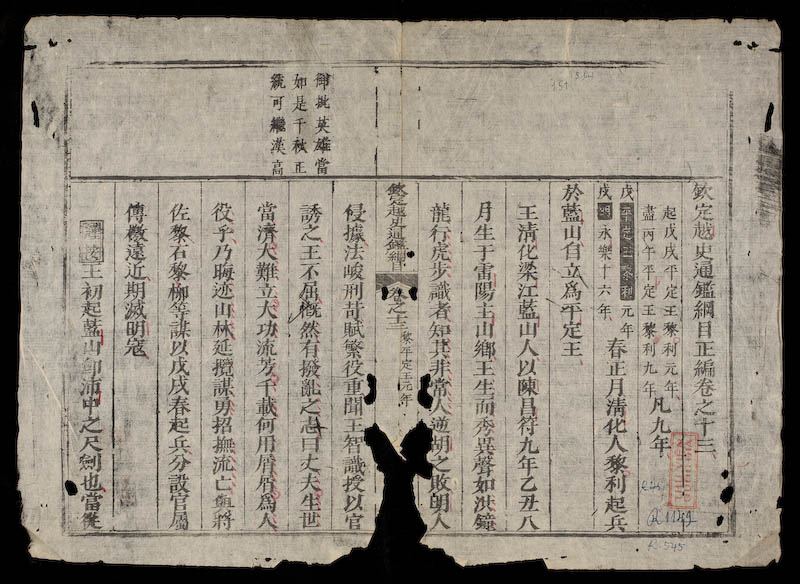 欽定越史通鑑綱目正編卷之十三
起戊戌平定王黎利元年
盡丙午平定王黎利九年
凡九年
戊戌
平定王黎利元年
明永樂十六年
春正月清化人黎利起兵
於藍山自立爲平定王
王清化梁江藍山人以陳昌符九年乙丑八
月生于雷陽主山鄉王生而秀異聲如洪鐘
龍行虎步識者知其非常人逆胡之敗明人
御批英雄當
如是千秋正
統可繼漢高
欽定越史通鑑綱目
卷之十三
黎平定王元年
侵據法峻刑苛賦繁役重聞王智識授以官
誘之王不屈慨然有撥亂之志曰丈夫生世
當濟大難立大功流芳千載何用屑屑爲人
役乎乃晦迹山林延攬謀勇招撫流亡與將
佐黎石黎柳等謀以戊戌春起兵分設官屬
傳檄遠近期滅明寇
謹按王初起藍山卽沛中之尺劍也當從